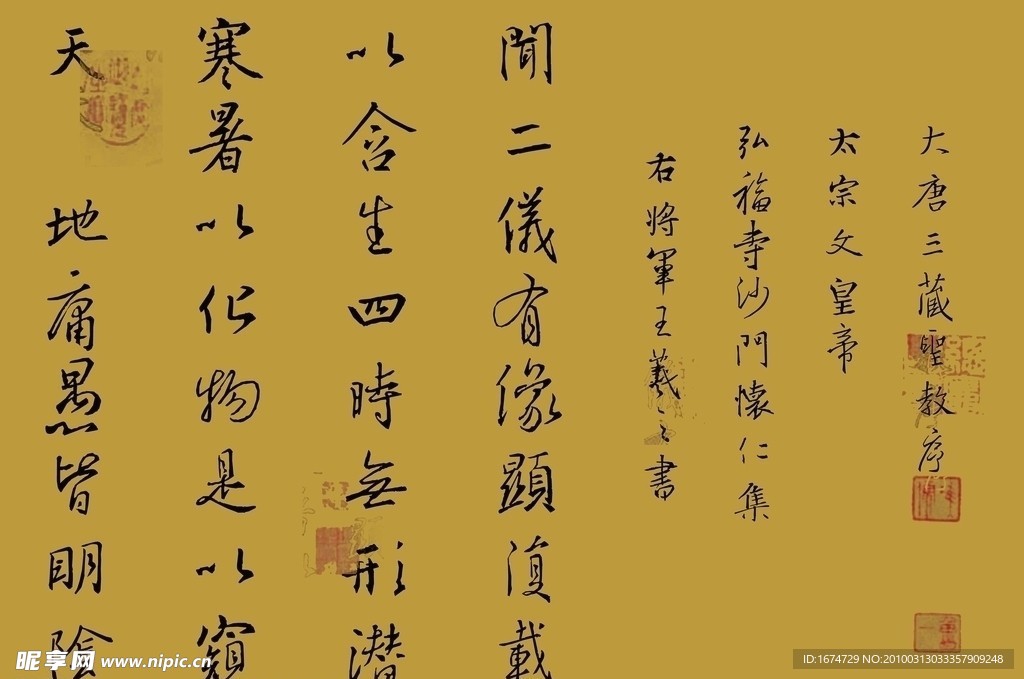 大唐三藏聖教序
太宗文皇帝
弘福寺沙門懷仁集
右將軍王羲之書
聞二儀有像顯復載
以含生四時無形潛
寒暑以化物是以窺
天地庸愚皆明陰
昵享网 www.nipic.cn
ID:1674729 NO:20100313033357909248